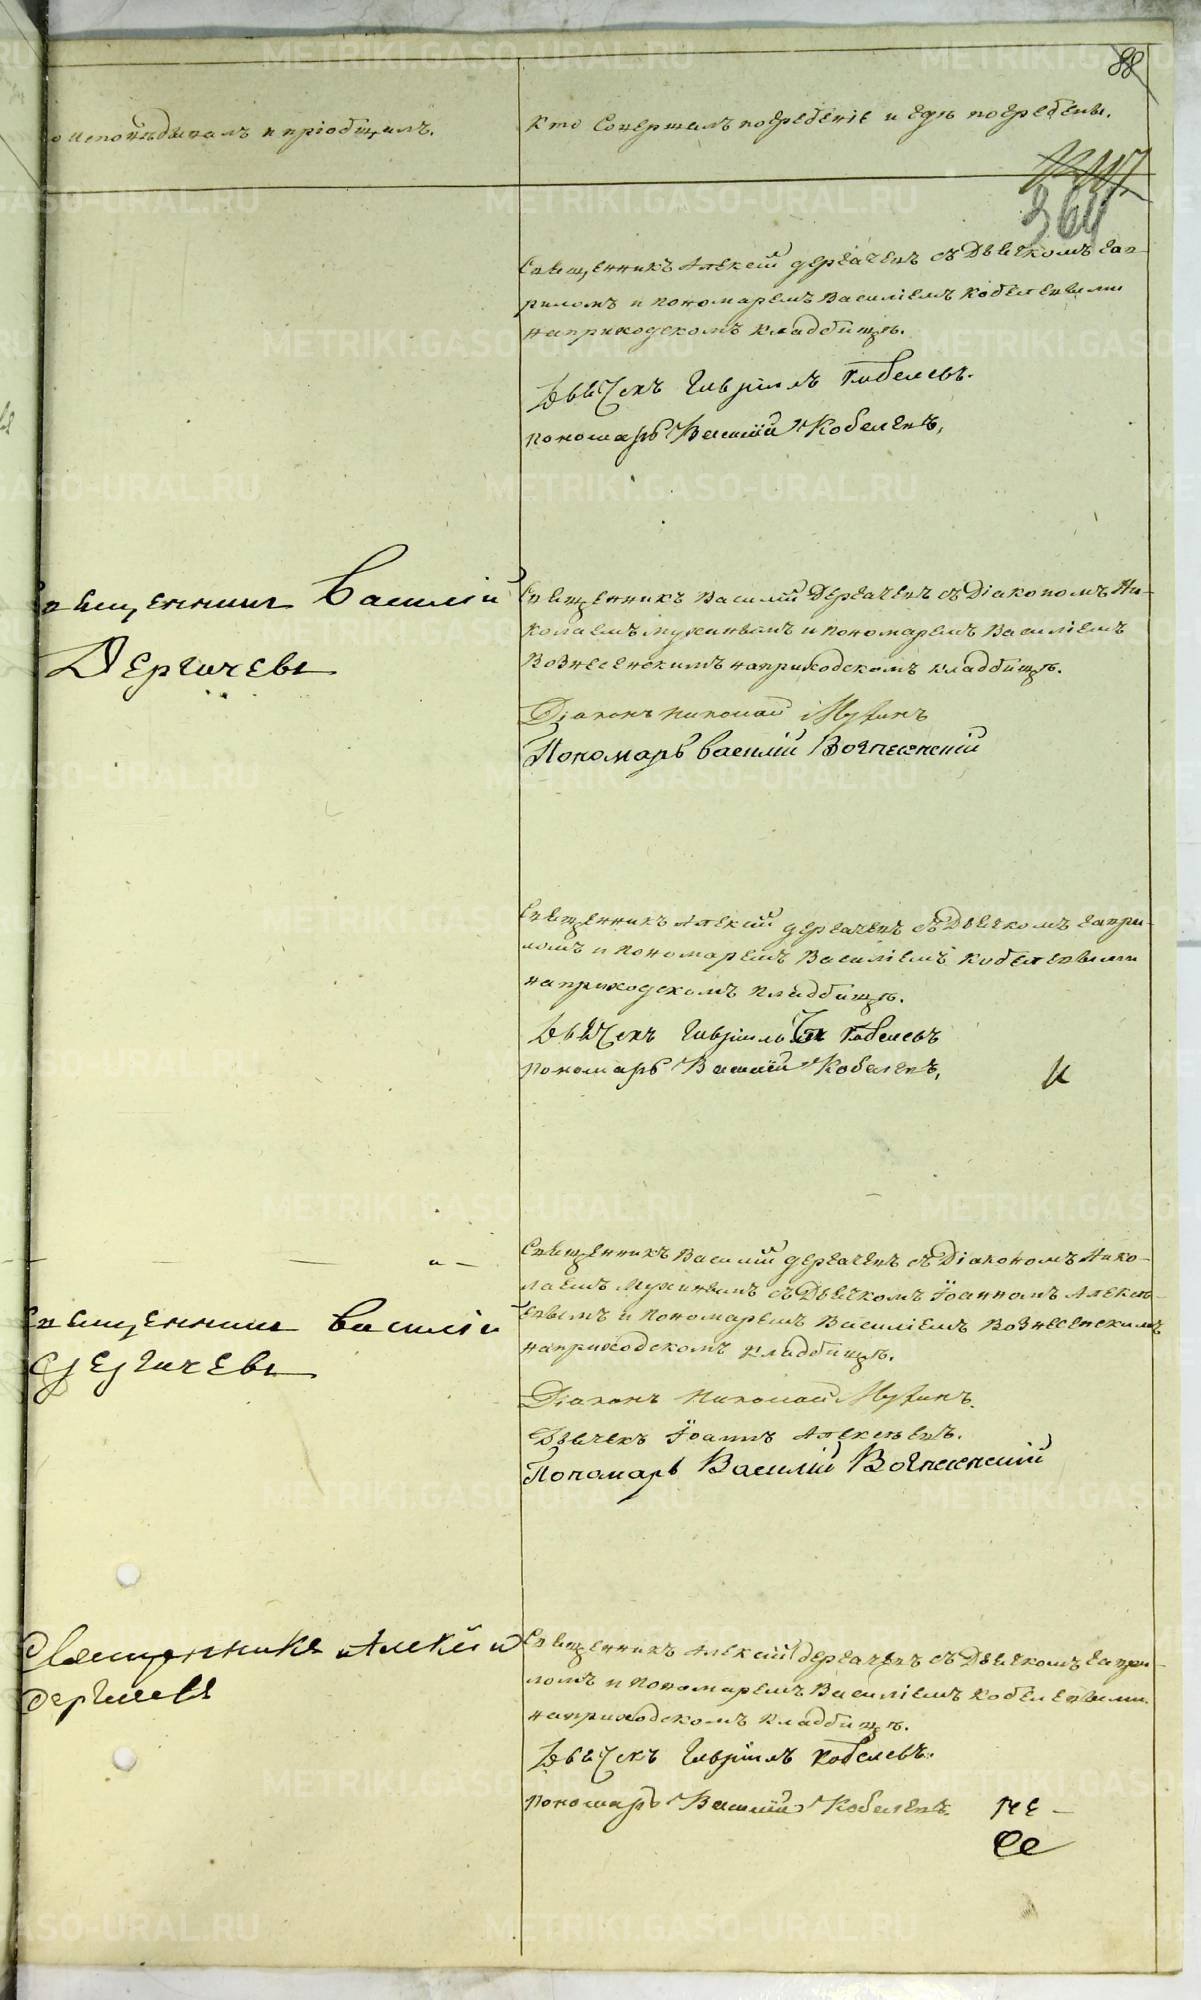 88
исповѣдывалъ и пріобщилъ.
Кто Совершалъ погребеніе и гдѣ погребены.
364
Священникъ Алексій Дергачевъ съ Дьячкомъ Гав-
риломъ и пономаремъ Василіемъ Кобелевыми
на приходскомъ кладбищѣ.
Дьячекъ Гавріилъ Кобелевъ.
пономарь Василій Кобелевъ,
Священникъ Василій
Дергачевъ
Священникъ Василій Дергачевъ съ Діакономъ Ни-
колаемъ Мухинымъ и пономаремъ Василіемъ
Вознесенскимъ на приходскомъ кладбищѣ.
Діаконъ Николай Мухинъ
Пономарь Василій Вознесенскій
Священникъ Алексій Дергачевъ съ Дьячкомъ Гаври-
ломъ и пономаремъ Василіемъ Кобелевыми
на приходскомъ кладбищѣ.
Дьячекъ Гавріилъ Кобелевъ
пономарь Василій Кобелевъ,
и
Священникъ Василій Дергачевъ съ Діакономъ Нико-
лаемъ Мухинымъ съ Дьячкомъ Іоанномъ Алексѣ-
евымъ и пономаремъ Василіемъ Вознесенскимъ
на приходскомъ кладбищѣ.
Священникъ Василій
Дергачевъ
Діаконъ Николай Мухинъ.
Дьячекъ Іоаннъ Алексѣевъ.
Пономарь Василій Вознесенскій
Священникъ Алексій
Дергачевъ
Священникъ Алексій Дергачевъ съ Дьячкомъ Гаври-
ломъ и пономаремъ Василіемъ Кобелевыми
на приходскомъ кладбищѣ.
Дьячекъ Гавріилъ Кобелевъ.
пономарь Василій Кобелевъ.
METRIKI.GASO-URAL.RU